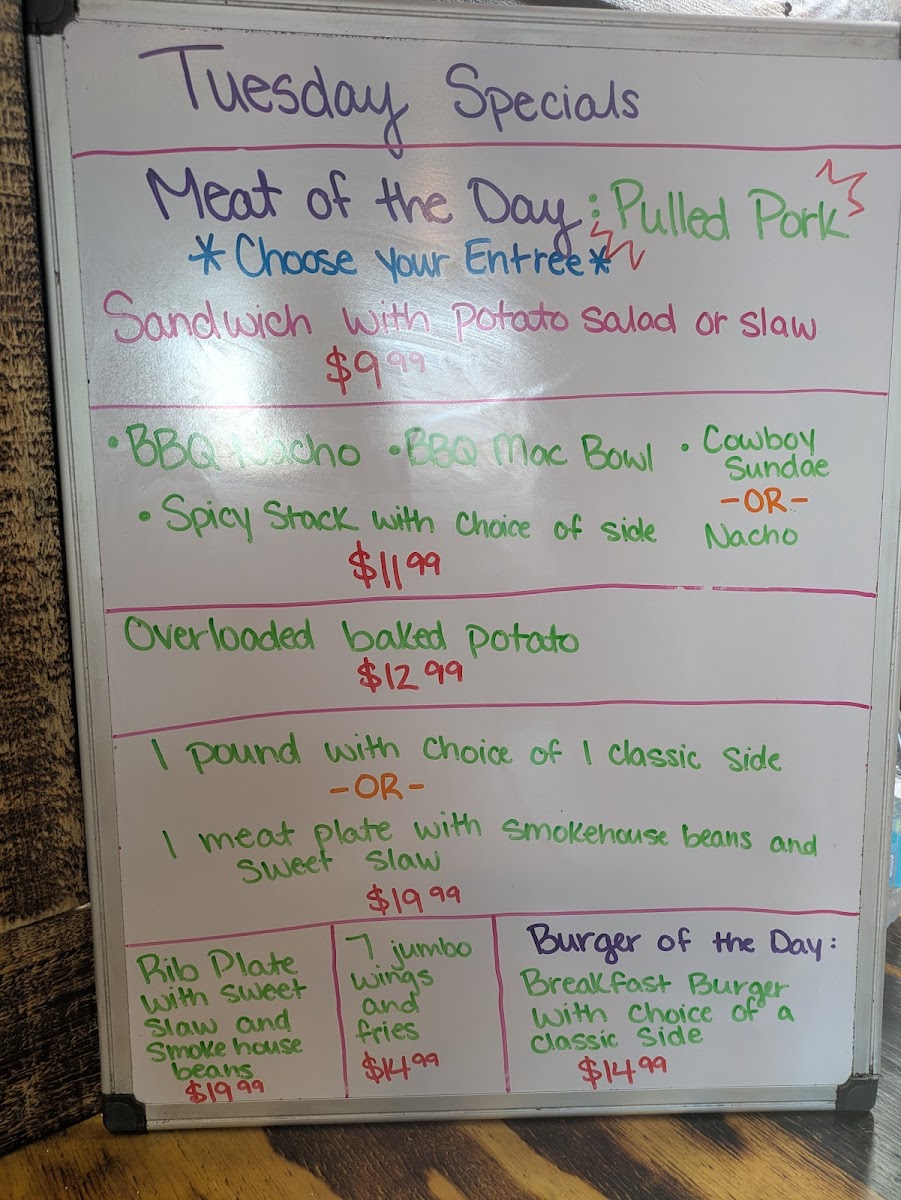 Tuesday Specials
Meat of the Day: Pulled Pork
*Choose your Entree*
Sandwich with potato salad or slaw
$9.99
• BBQ Nacho • BBQ Mac Bowl • Cowboy Sundae
-OR-
Nacho
• Spicy Stack with choice of side
$11.99
Overloaded baked potato
$12.99
1 pound with choice of 1 classic side
-OR-
1 meat plate with smokehouse beans and
sweet slaw
$19.99
Rib Plate
with sweet
slaw and
smoke house
beans
$19.99
7 jumbo
wings
and
fries
$14.99
Burger of the Day:
Breakfast Burger
with choice of a
classic side
$14.99